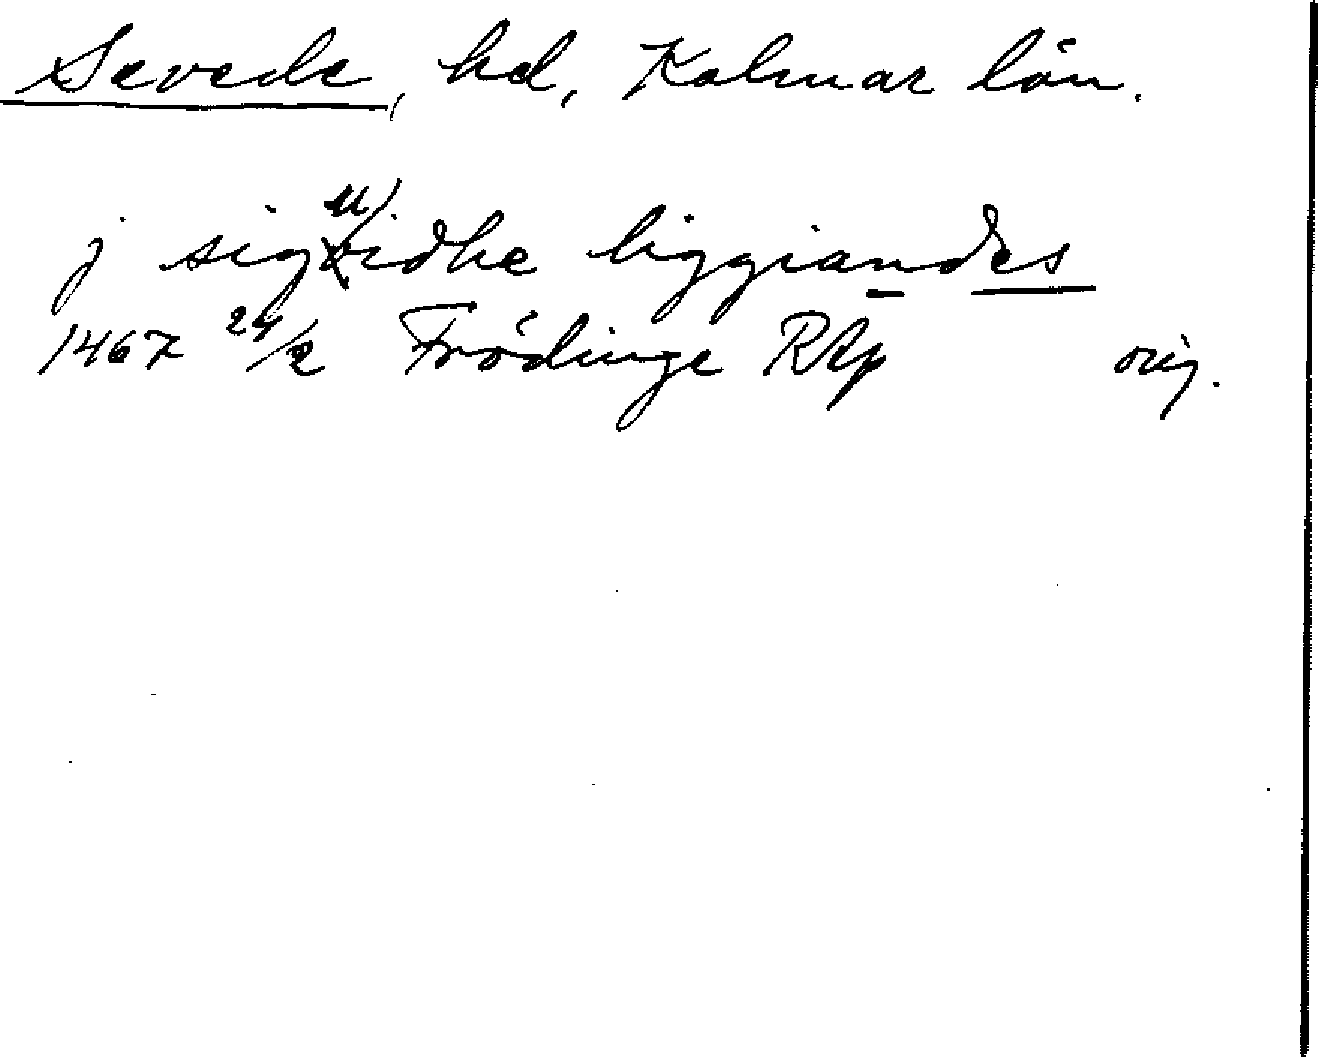 Sevede, hd, Kalmar län.
j siguidhe liggiandes
1467 24/2 Frödinge RAp orig.